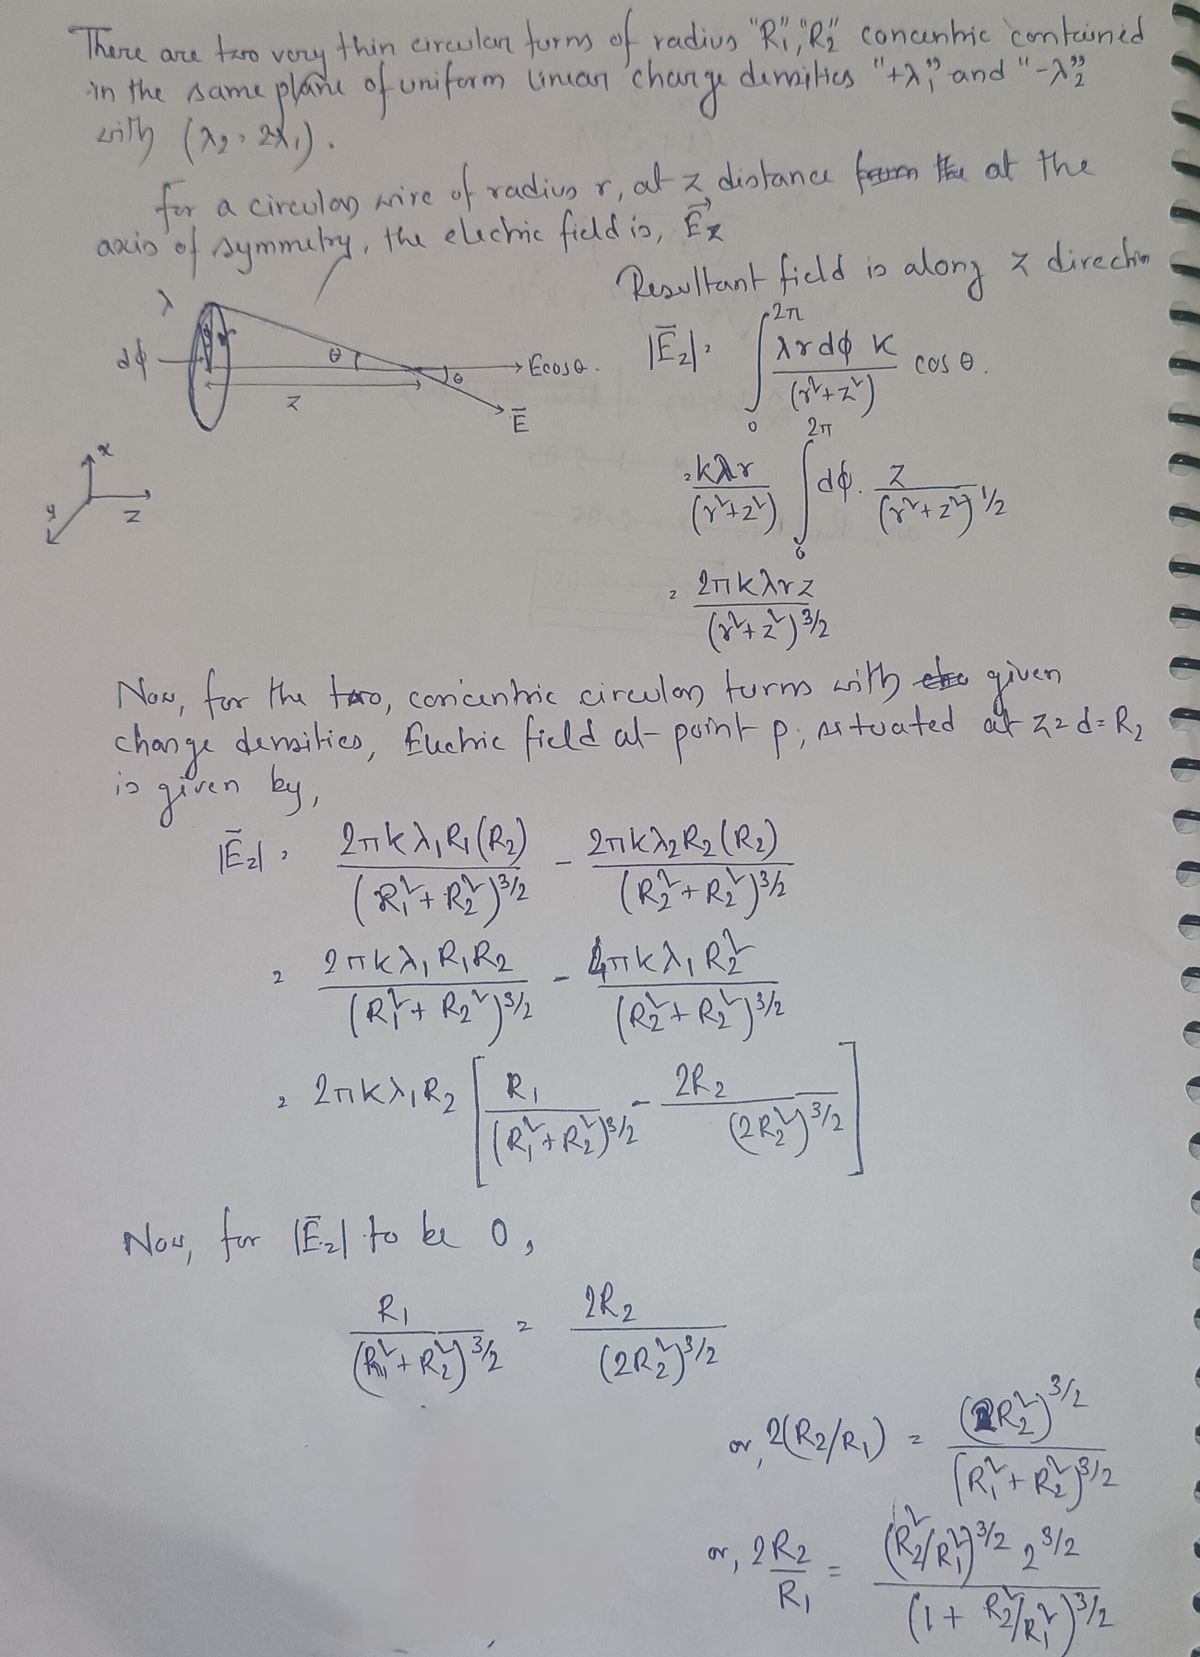 There are two very thin circular turns of radius "R₁", "R₂" concentric contained
in the same plane of uniform linear charge densities "+λ₁" and "-λ₂"
with (λ₂ = 2λ₁).
for a circular wire of radius r, at z distance from the at the
axis of symmetry, the electric field is, E⃗z
Resultant field is along z direction
λ
dφ
r
θ
z
θ
E cosθ.
E̅
x
y
z
|E̅z| = ∫₀^{2π} λrdφ k / (r²+z²) cos θ.
= kλr / (r²+z²) ∫₀^{2π} dφ. z / (r²+z²)^{1/2}
= 2πkλrz / (r²+z²)^{3/2}
Now, for the two, concentric circular turns with given
charge densities, Electric field at point p, situated at z = d = R₂
is given by,
|E̅z| = 2πkλ₁R₁(R₂) / (R₁²+R₂²)^{3/2} - 2πkλ₂R₂(R₂) / (R₂²+R₂²)^{3/2}
= 2πkλ₁R₁R₂ / (R₁²+R₂²)^{3/2} - 4πkλ₁R₂² / (R₂²+R₂²)^{3/2}
= 2πkλ₁R₂ [ R₁ / (R₁²+R₂²)^{3/2} - 2R₂ / (2R₂²)^{3/2} ]
Now, for |E̅z| to be 0,
R₁ / (R₁²+R₂²)^{3/2} = 2R₂ / (2R₂²)^{3/2}
or, 2(R₂/R₁) = (2R₂²)^{3/2} / (R₁²+R₂²)^{3/2}
or, 2R₂ / R₁ = (R₂²/R₁²)^{3/2} 2^{3/2} / (1 + R₂²/R₁²)^{3/2}